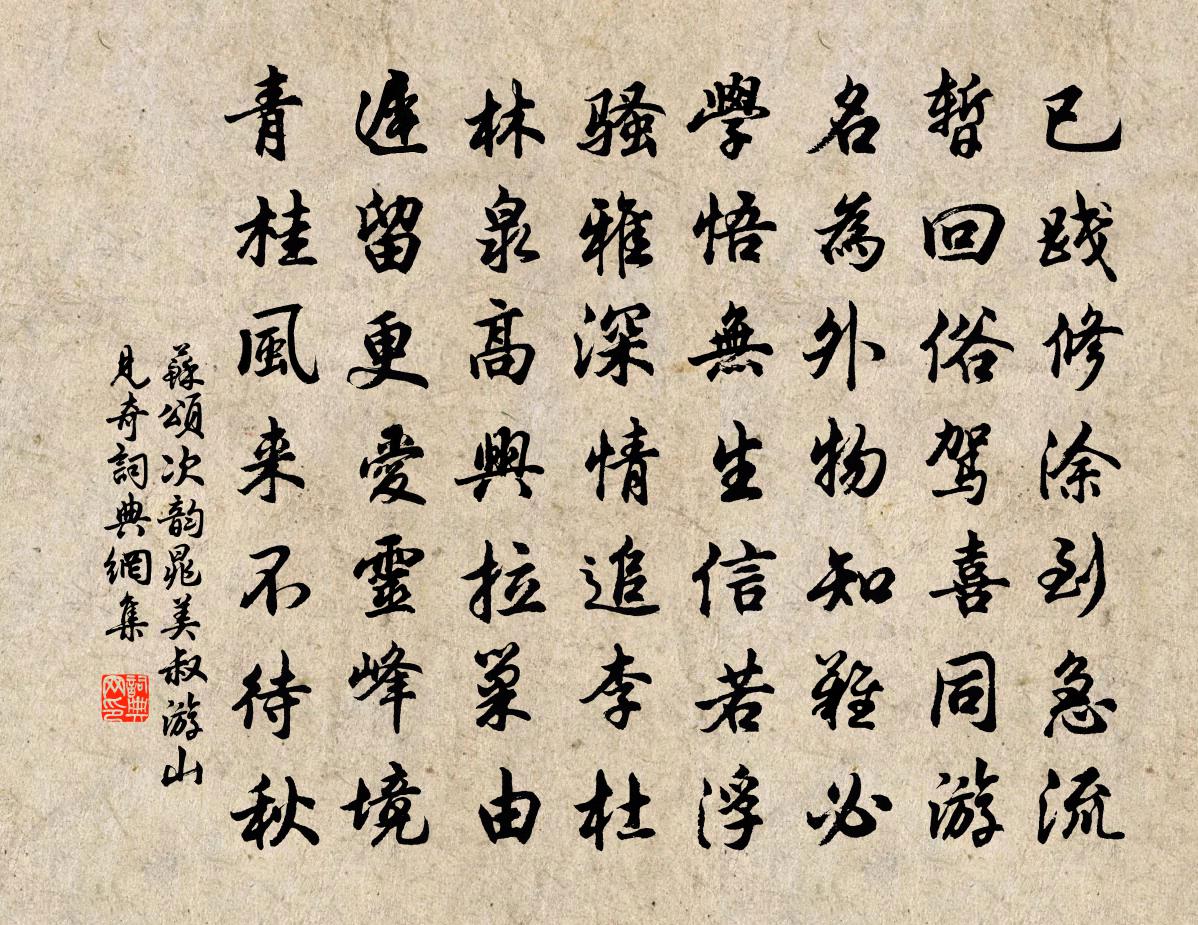 已踐修涂到急流
暫回俗駕喜同游
名為外物知難必
學悟無生信若浮
騷雅深情追李杜
林泉高興拉巢由
遲留更愛靈峰境
青桂風来不待秋
蘇頌次韵晁美叔游山
見奇詞典網集
詞典网印